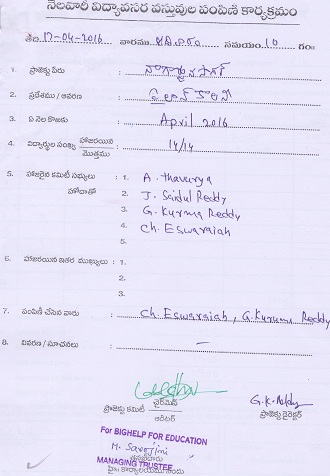 నెలవారీ విద్యావసర వస్తువుల పంపిణి కార్యక్రమం
తేది.17-04-2016 వారము ఆదివారం సమయం.10 గం॥
1. ప్రాజెక్టు పేరు : నాగార్జున సాగర్
2. ప్రదేశము / ఆవరణ : పైలాన్ కాలనీ
3. ఏ నెల కొరకు : April 2016
4. విద్యార్థుల సంఖ్య హాజరయిన / మొత్తము : 14/14
5. హాజరైన కమిటీ సభ్యులు : 1. A. Thavurya
హోదాతో 2. J. Saidul Reddy
3. G. Kurma Reddy
4. Ch. Eswaraiah
5.
6. హాజరయిన ఇతర ముఖ్యులు : 1.
2.
3.
7. పంపిణి చేసిన వారు : Ch. Eswaraiah, G. Kurumu Reddy
8. వివరణ / సూచనలు : –
ప్రాజెక్టు కమిటీ చైర్మెన్ G.K. Reddy
ఆడిటర్ ప్రాజెక్టు డైరెక్టర్
For BIGHELP FOR EDUCATION
M. Sarojini
MANAGING TRUSTEE